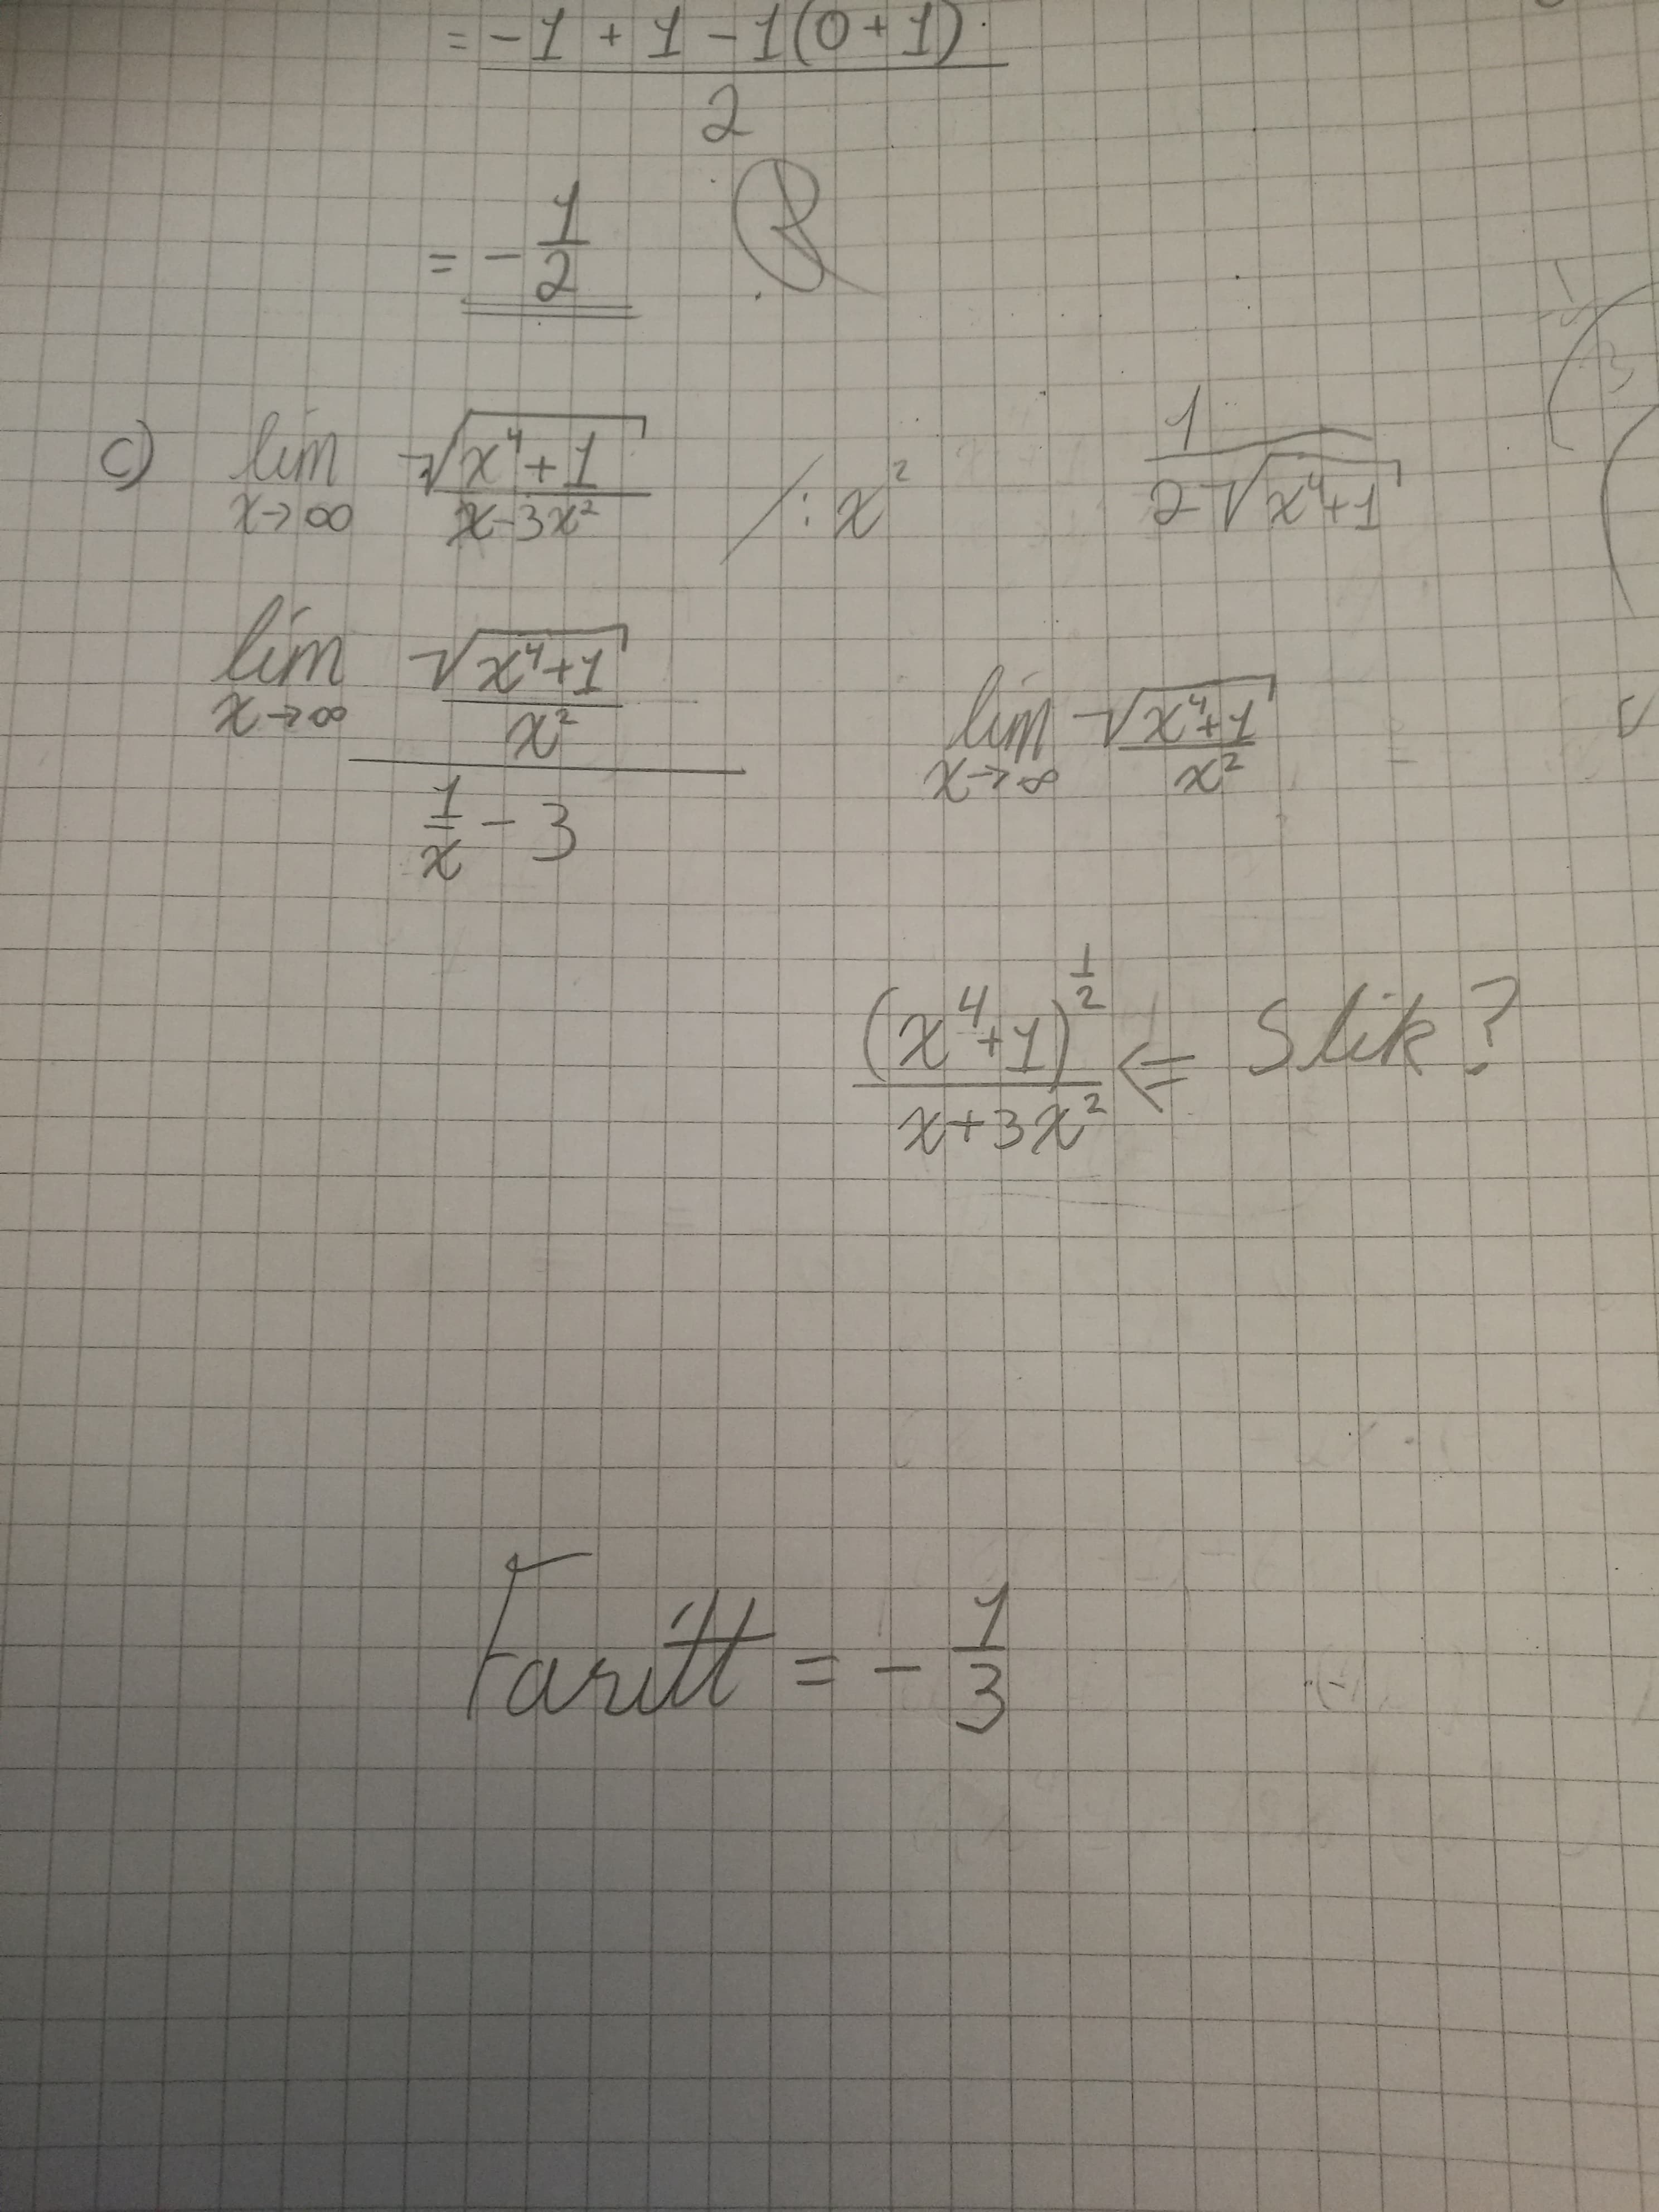 = -1 + 1 - 1(0+1)
2
= - 1/2 R
c) lim x→∞ √(x⁴+1) / (x-3x²) /:x² 1/(2√(x⁴+1))
lim x→∞ (√(x⁴+1) / x²) / (1/x - 3)
lim x→∞ √(x⁴+1) / x²
(x⁴+1)^(1/2) / (x+3x²) <= Slik?
= - 1/3